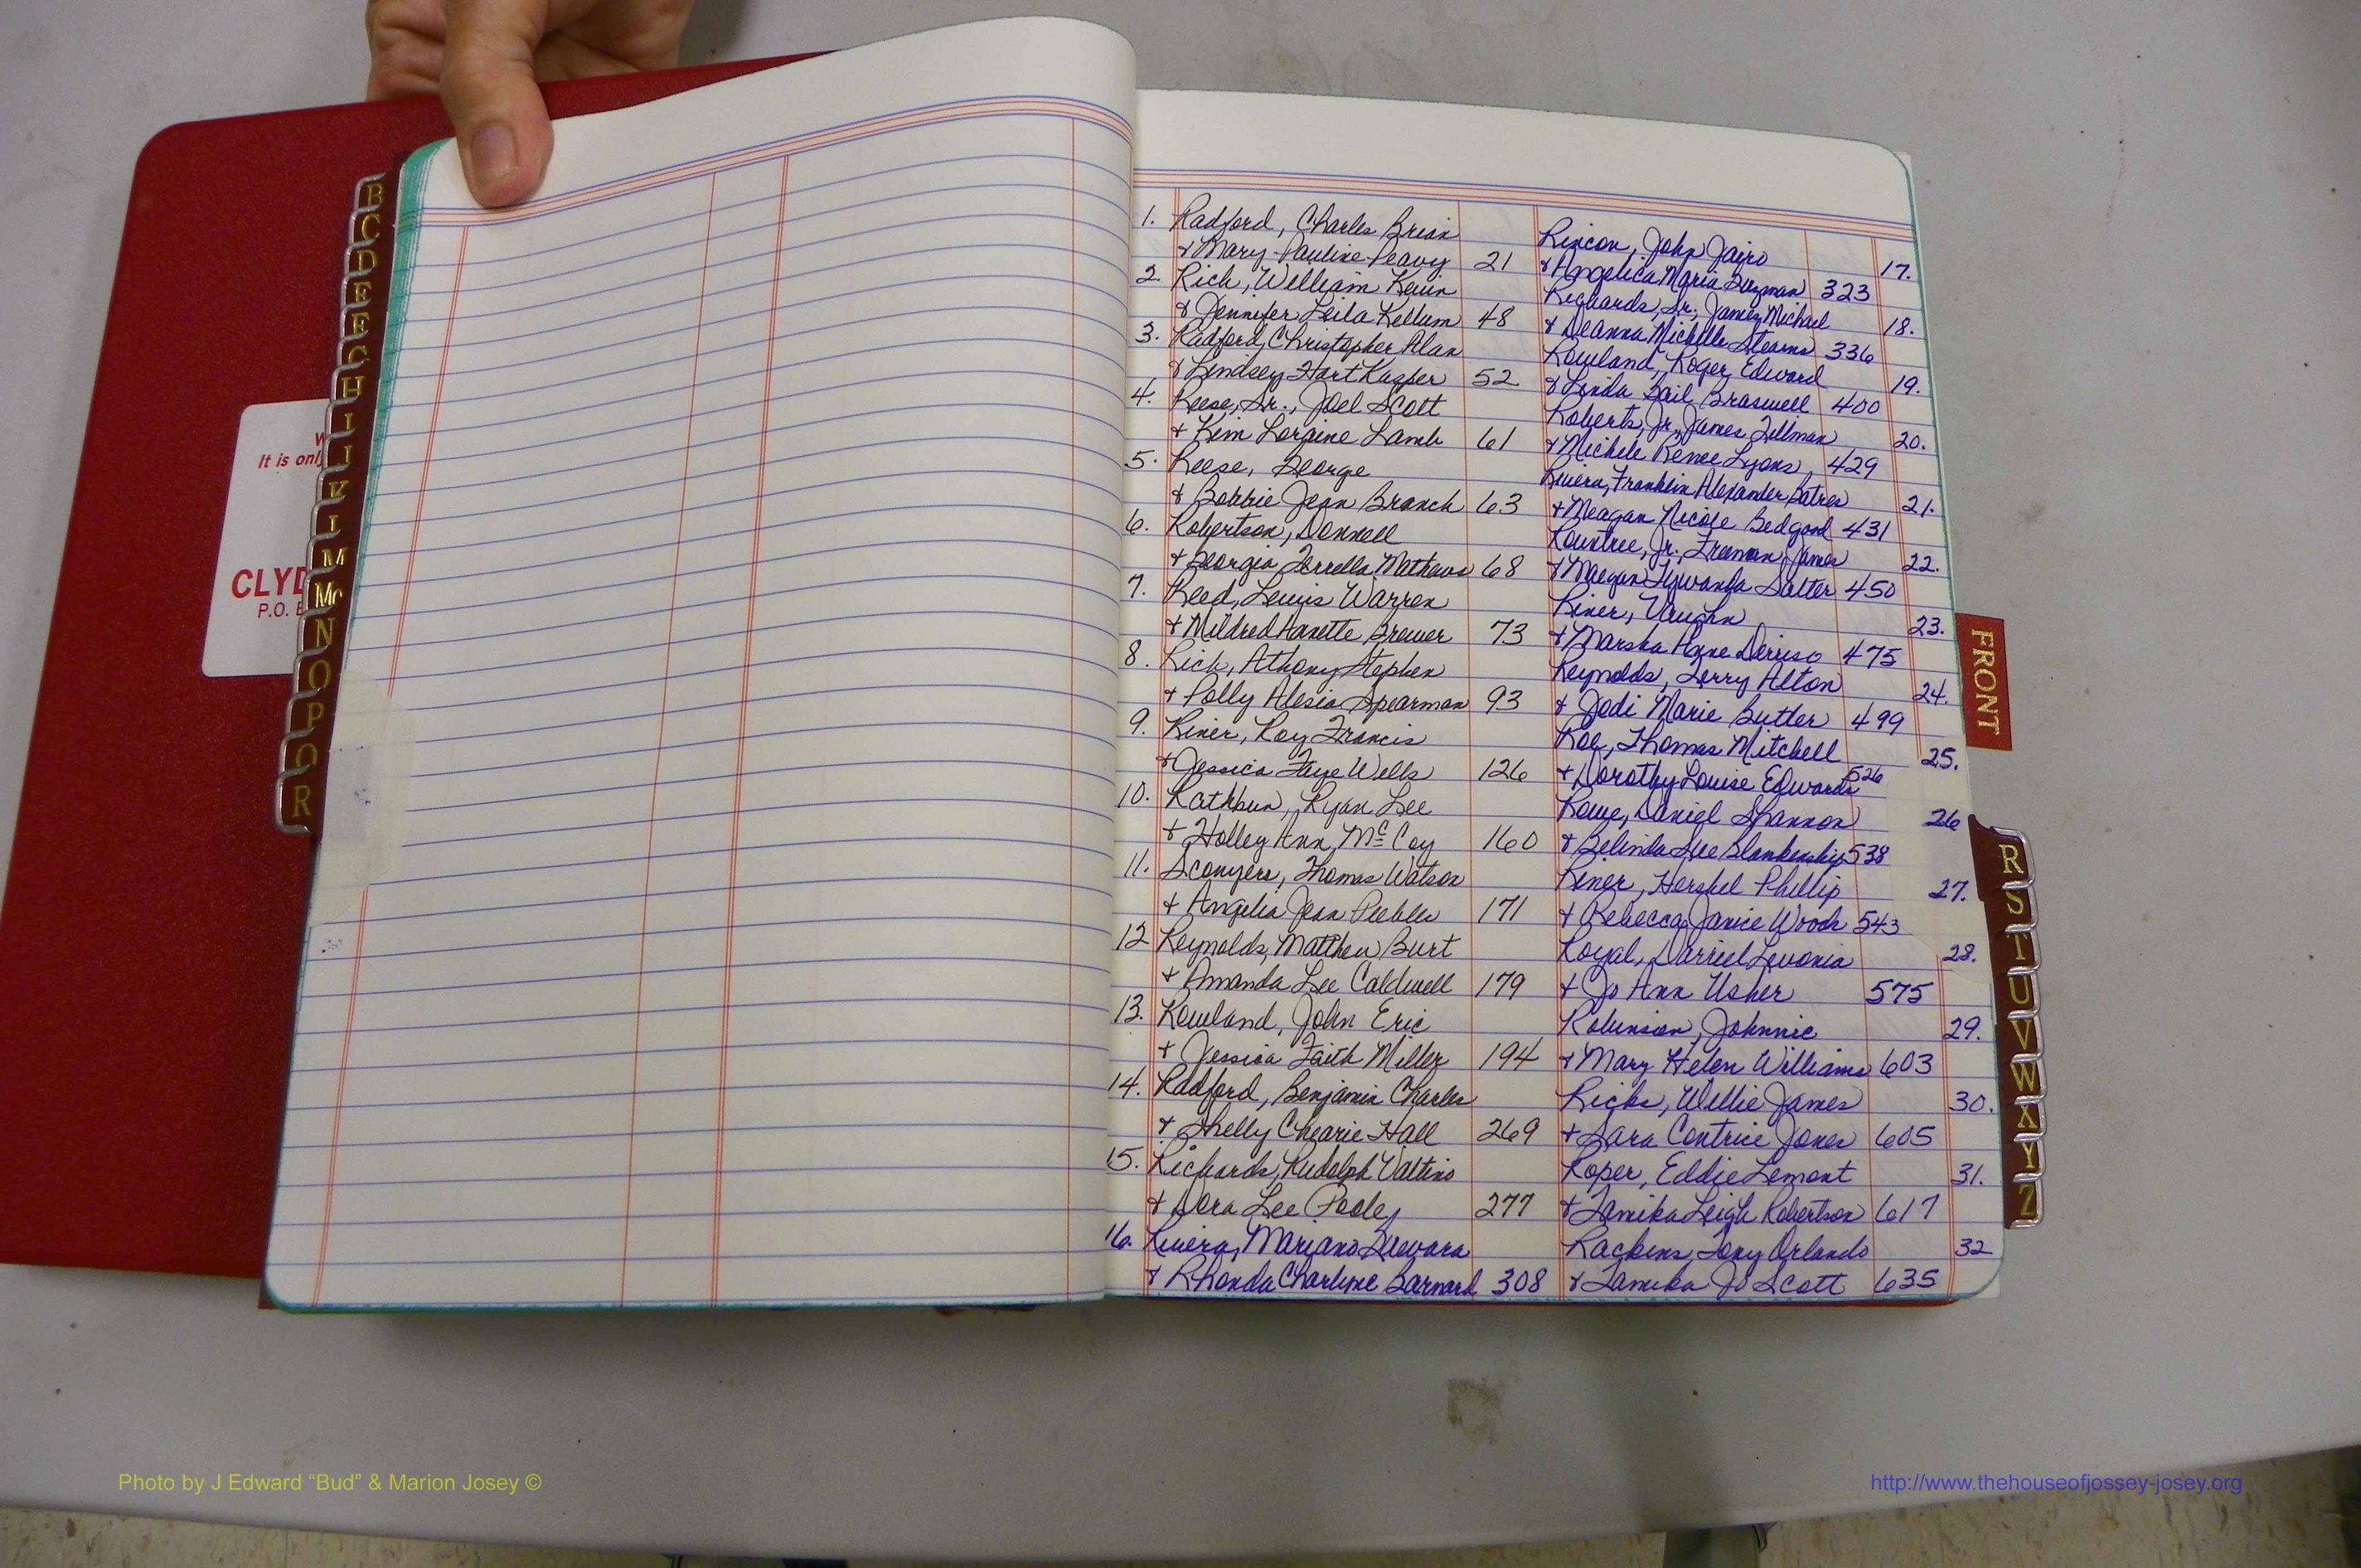 B
C
D
E
F
G
H
I
J
K
L
M
Mc
N
O
P
Q
R
W
It is onl
CLYD
P.O. B
1. Radford, Charles Brian
+ Mary Pauline Peavy 21
2. Rich, William Kevin
+ Jennifer Leila Kellum 48
3. Radford, Christopher Alan
+ Lindsey Hart Kasper 52
4. Reese, Sr., Joel Scott
+ Kim Loraine Lamb 61
5. Reese, George
+ Bobbie Jean Branch 63
6. Robertson, Donnell
+ Georgia Terrella Mathews 68
7. Reed, Lewis Warren
+ Mildred Nanette Brewer 73
8. Rich, Athony Stephen
+ Polly Alesia Spearman 93
9. Riner, Roy Francis
+ Jessica Faye Wells 126
10. Rathbun, Ryan Lee
+ Holley Ann McCoy 160
11. Sconyers, Thomas Watson
+ Angelia Jean Peebles 171
12 Reynolds, Matthew Burt
+ Amanda Lee Caldwell 179
13. Rowland, John Eric
+ Jessica Faith Miller 194
14. Radford, Benjamin Charles
+ Shelly Chearie Hall 269
15. Richards, Rudolph Valtino
+ Dora Lee Poole 277
16. Rivera, Mariano Guevara
+ Rhonda Charlene Barnard 308
Rincon, John Jairo 17.
+ Angelica Maria Guzman 323
Richards, Sr., James Michael 18.
+ DeAnna Michelle Stearns 336
Rowland, Roger Edward 19.
+ Linda Gail Braswell 400
Roberts, Jr., James Tillman 20.
+ Michele Renee Lyons 429
Rivera, Franklin Alexander Batres 21.
+ Meagan Nicole Bedgood 431
Rountree, Jr., Freeman James 22.
+ Maegan Salter 450
Riner, Vaughn 23.
+ Marsha Anne Derriso 475
Reynolds, Terry Alton 24.
+ Jodi Marie Butler 499
Roe, Thomas Mitchell 25.
+ Dorothy Louise Edwards 526
Rowe, Daniel Shannon 26
+ Belinda Sue Blankenship 538
Riner, Hershel Phillip 27.
+ Rebecca Janice Woods 543
Royal, Darriel Levonia 28.
+ Jo Ann Usher 575
Robinson, Johnnie 29.
+ Mary Helen Williams 603
Ricks, Willie James 30.
+ Sara Contrice Jones 605
Roper, Eddie Lemont 31.
+ Tamika Leigh Robertson 617
Rackins, Tony Orlando 32
+ Tamika Jo Scott 635
FRONT
R
S
T
U
V
W
X
Y
Z
Photo by J Edward “Bud” & Marion Josey ©
http://www.thehouseofjossey-josey.org